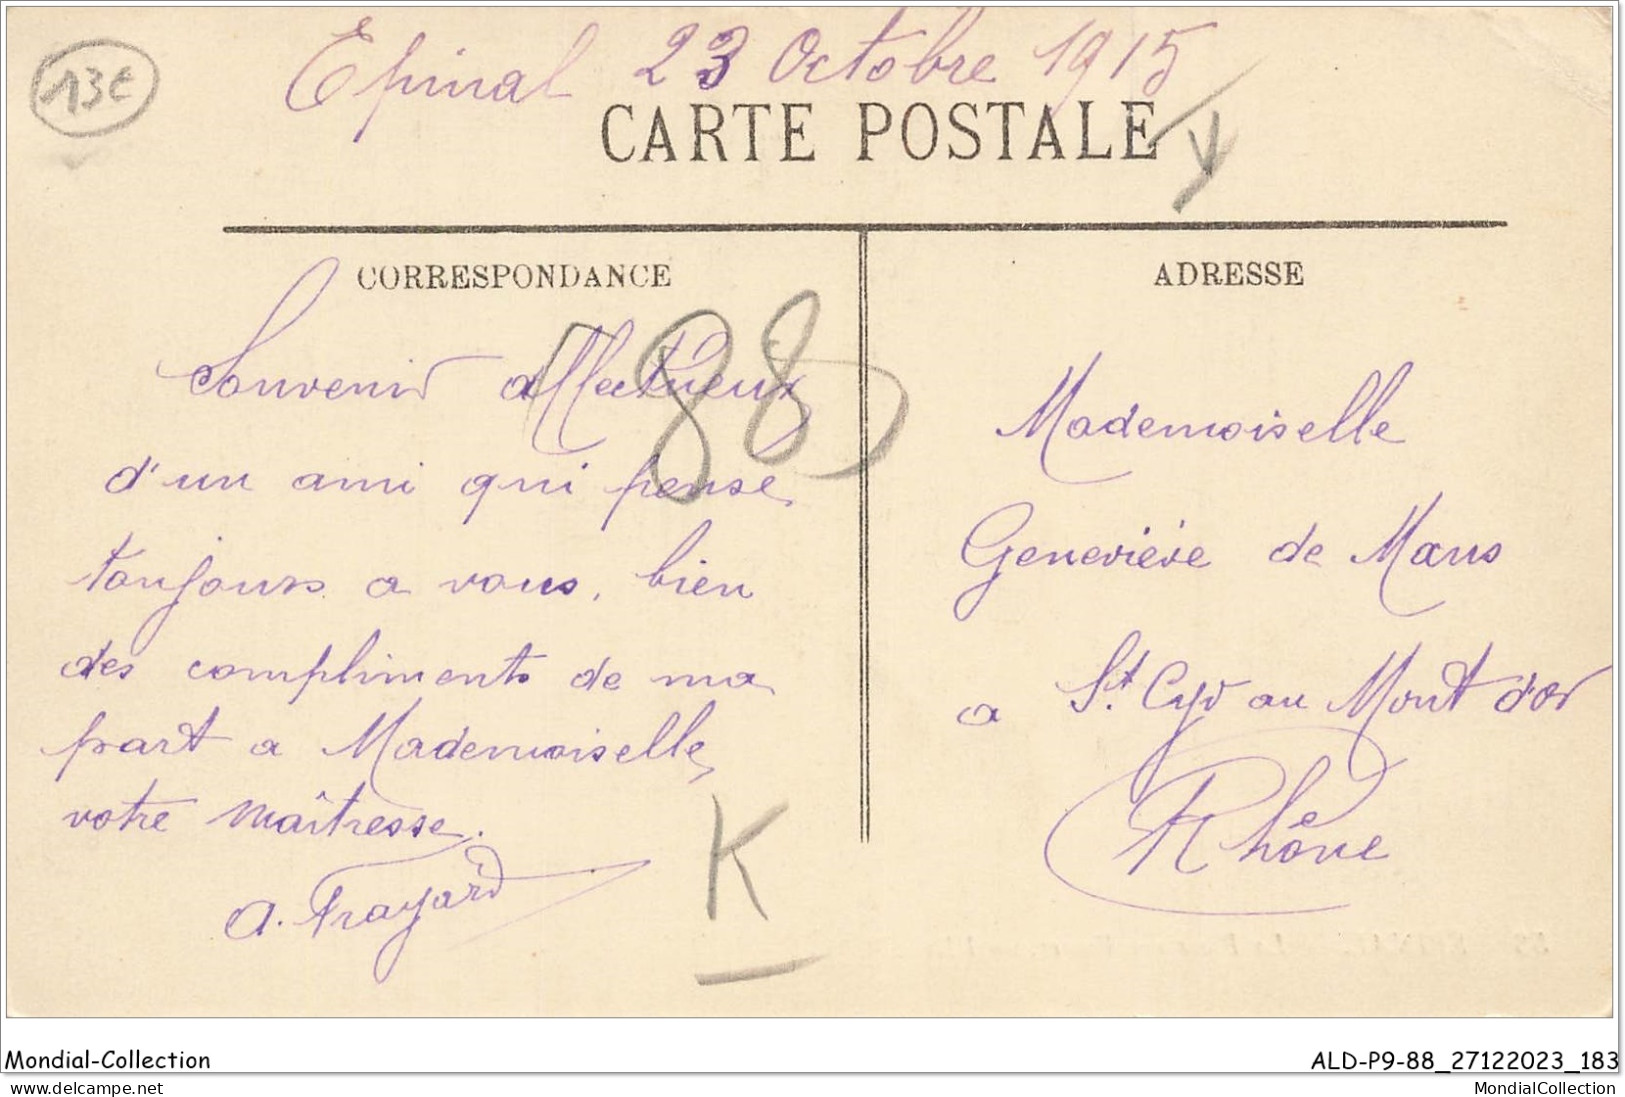 13€
Epinal 23 Octobre 1915
CARTE POSTALE
CORRESPONDANCE
Souvenir affectueux
d'un ami qui pense
toujours a vous, bien
des compliments de ma
part a Mademoiselle,
votre maîtresse.
A. Frayard
88
K
ADRESSE
Mademoiselle
Geneviève de Mans
a St. Cyr au Mont d'or
Rhône
Mondial-Collection
ALD-P9-88_27122023_183
www.delcampe.net
MondialCollection